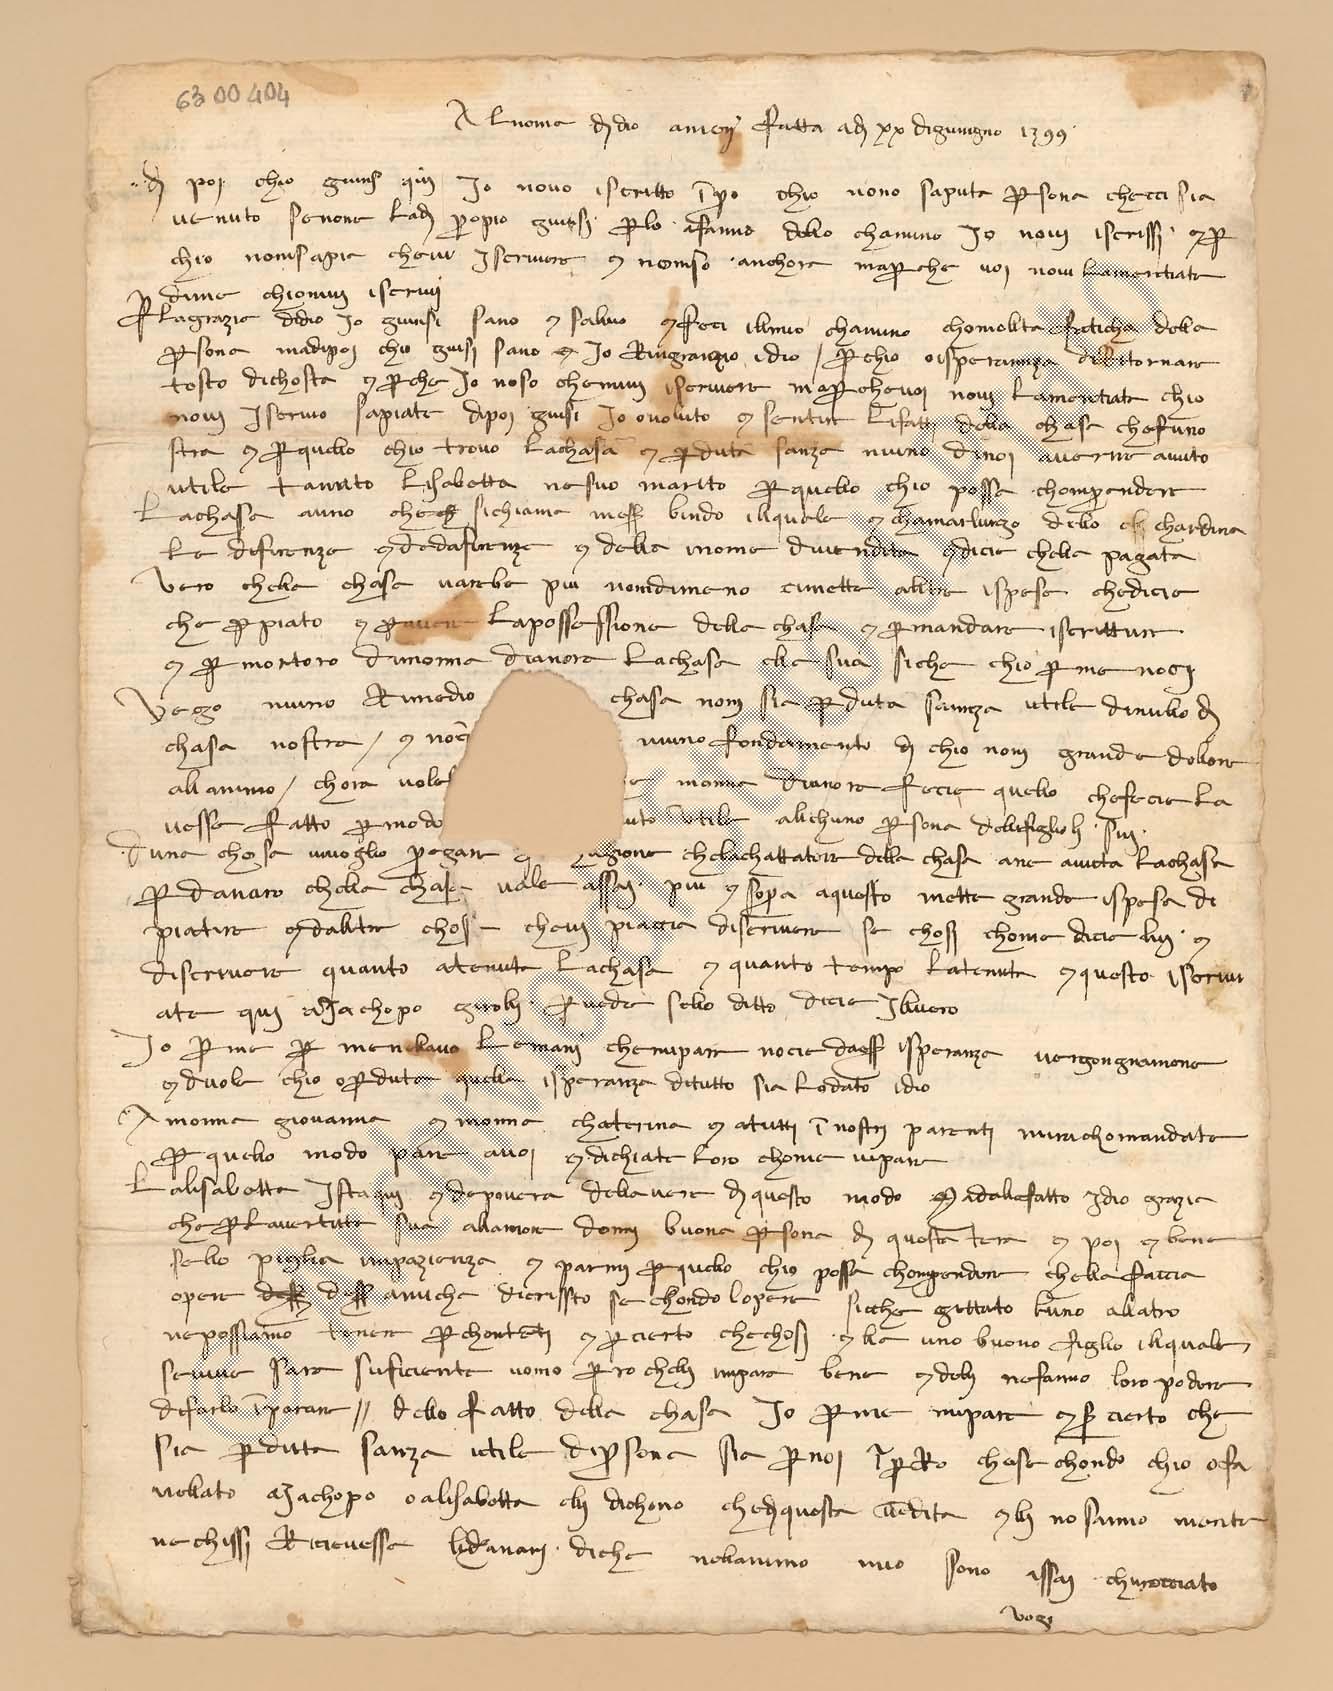 6300404
Al nome di dio amen fatta adi xx di giungno 1399
di poi chio giunsi qui Io novo iscritto Ipo chio nono saputa psona checci sia
venuto senone ladi propio giunsi plo afanno dello chamino Io novi iscrissi e p
chio nomsapia chevi Iscrivere e nomso anchora map che voi novi lamentiate
p dime chionovi iscrivi
p lagrazia didio Io giunsi sano e salvo e feci ilmio chamino chomolta faticha della
psona madipoi chio giusi sano e Io Ringrazio idio / p chio oisperanza diRitornare
tosto dichosta e pche Io noso chemmi iscrivere mapchevoi novi lamentiate chio
novi Iscrivo sapiate dipoi giusi Io ovoluto e sentire lifatti della chasa chefuno
stra e pquello chio trovo lachasa e pduta sanza niuno dinoi averne avuto
utile tanto lisabetta nesuo marito pquello chio posso chomprendere
lachasa anno che sichiama mess bindo ilquale e chamarlingo dello chardina
le difirenze e dadafirenze e della inome divendita e dicie chella pagata
vero chella chasa varebe piu nondimeno cimette altre ispese chedicie
che p piato e p avere lapossessione della chasa e pmandare iscritture
e p mortoro dimonna dianora lachasa ella sua siche chio p me noci
vegio niuno Rimedio chasa nom sia pduta sanza utile dinullo di
chasa nostra / e noci niuno fondamento di chio nom grande dollore
allanimo / chora vole monna dianora fecie quello chefecie la
vesse fatto pmodo uto utile alchuno psona dellifiglioli sui
duna chosa vivoglio pregare chelachattatore della chasa ane avuta lachasa
p danaro chella chasa vale assai piu e sopra aquesto mette grande ispesa di
piatire e daltre chose chevi piaccia discrivere se chosi chome dicie lui e
discrivere quanto atenuta lachasa e quanto tempo latenuta e questo iscrivi
ate qui aJachopo giroli p vedere sello ditto dicie Ilvero
Io p me p menelavo lemani chemipare nocie daess isperanza vergongnamene
e duole chio opduta quella isperanza ditutto sia lodato idio
A monna giovanna e monna chaterina e atutti i nostri parenti mirachomandate
p quello modo pare avoi e dichiate loro chome vipare
lalisabetta Istaqui e depovera dellavere di questo modo adallefatto idio grazia
che plavertute sua allamore dogni buona psona di questa tera e poi e bene
sello piglia impazienza e parmi pquello chio posso chomprendere chella faccia
opere dess amicha dicristo sechondo lopere sicche gittato luno allatro
nepossiamo tenere pchonteti e pcierto chechosi ella uno buono figlio ilquale
sevive sara suficiente uomo p ro chelli impara bene e delli nefanno loro podere
difarlo Iparare // dello fatto della chasa Io pme mipare e p cierto che
sia pduta sanza utile dipsona sia pnoi Ip Ro chase chondo chio ofa
vellato aJachopo oalisabetta elli dichono chediquesta vedita elli nosanno niente
nechissi Ricievesse lidanari diche nellanimo mio sono assai churociato